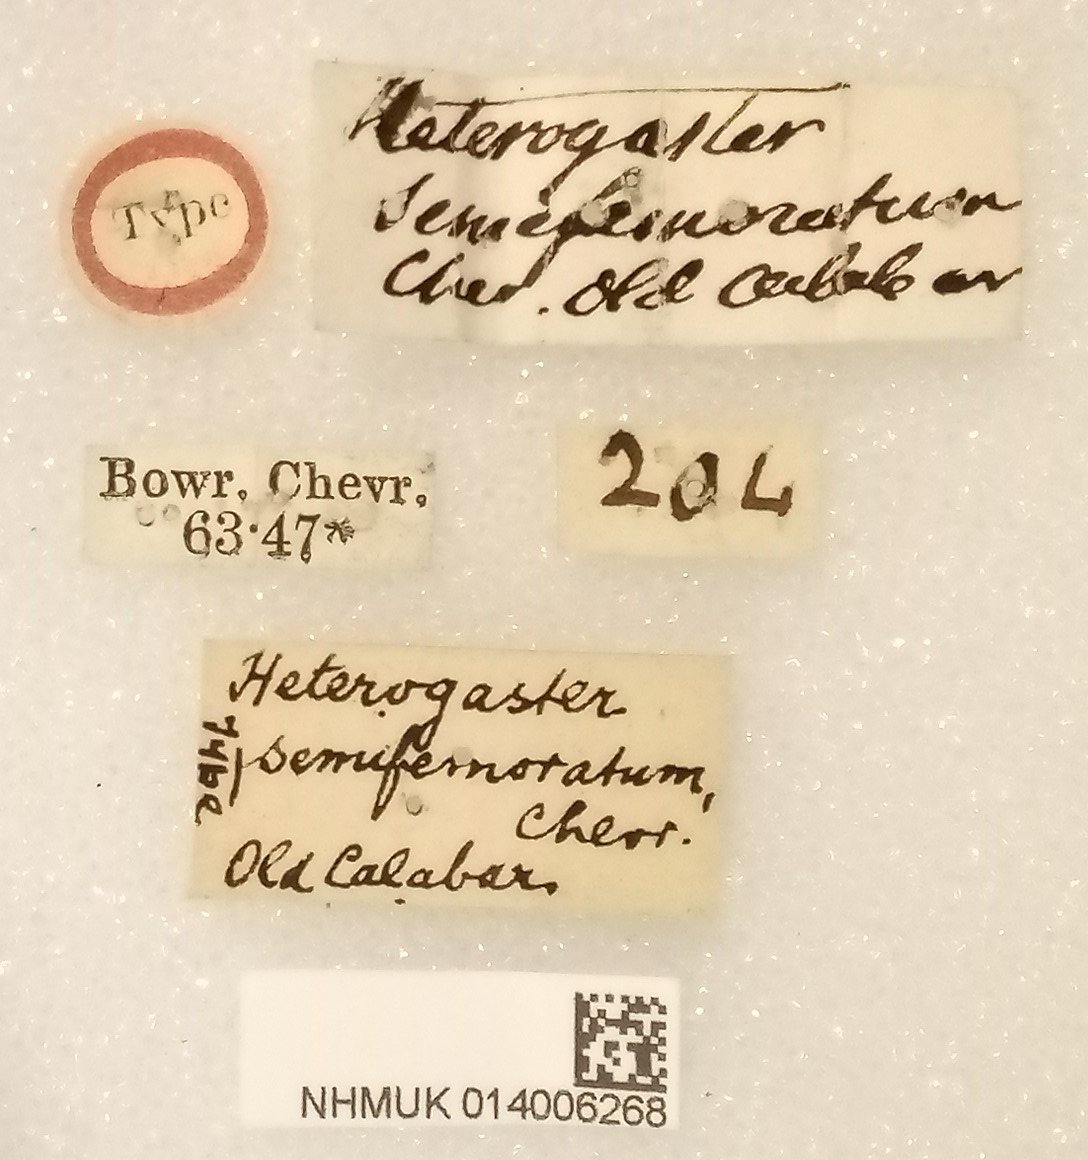 Type
Heterogaster
semifemoratum
Chev. Old Calabar
Bowr. Chevr.
63·47*
204
Heterogaster
semifemoratum,
Chevr.
Old Calabar.
NHMUK 014006268